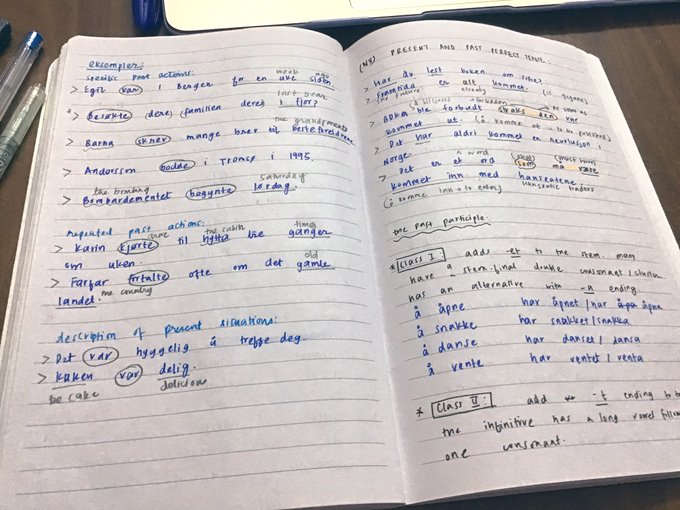 eksempler:
specific past actions:
week ago
> Egil var i Bergen for en uke siden
last year
* besøkte dere familien deres i fjor?
the grandparents
> Barna skrev mange brev til besteforeldrene.
> Anderson bodde i Tromsø i 1995.
the bombing Saturday
> Bombardementet begynte lørdag.
repeated past actions:
drove the cabin times
> Karin kjørte til hytta tre ganger
om uken.
old
> Farfar fortalte ofte om det gamle
landet. the country
description of present situations:
> Det var hyggelig å treffe deg.
> Kaken var deilig.
the cake delicious
(N3) PRESENT AND PAST PERFECT TENSE
> Har du lest boken om sofie?
> Framtida er alt kommet. (is
the future already
forbidden as soon as
> ble forbudt straks den var
kommet ut. (å komme ut → to be published)
> Det har aldri kommet en revolusjon i
Norge.
a word must have
> Det er et ord som må være
kommet inn med hanseatene.
(å komme inn → to enter) hanseatic traders
the past participle:
* Class I: adds -et to the stem. many
have a stem-final double consonant/cluster.
has an alternative with -a ending
å åpne har åpnet/har åpna
å snakke har snakket/snakka
å danse har danset/dansa
å vente har ventet/venta
* Class II: add -t ending to
the infinitive has a long vowel
one consonant.